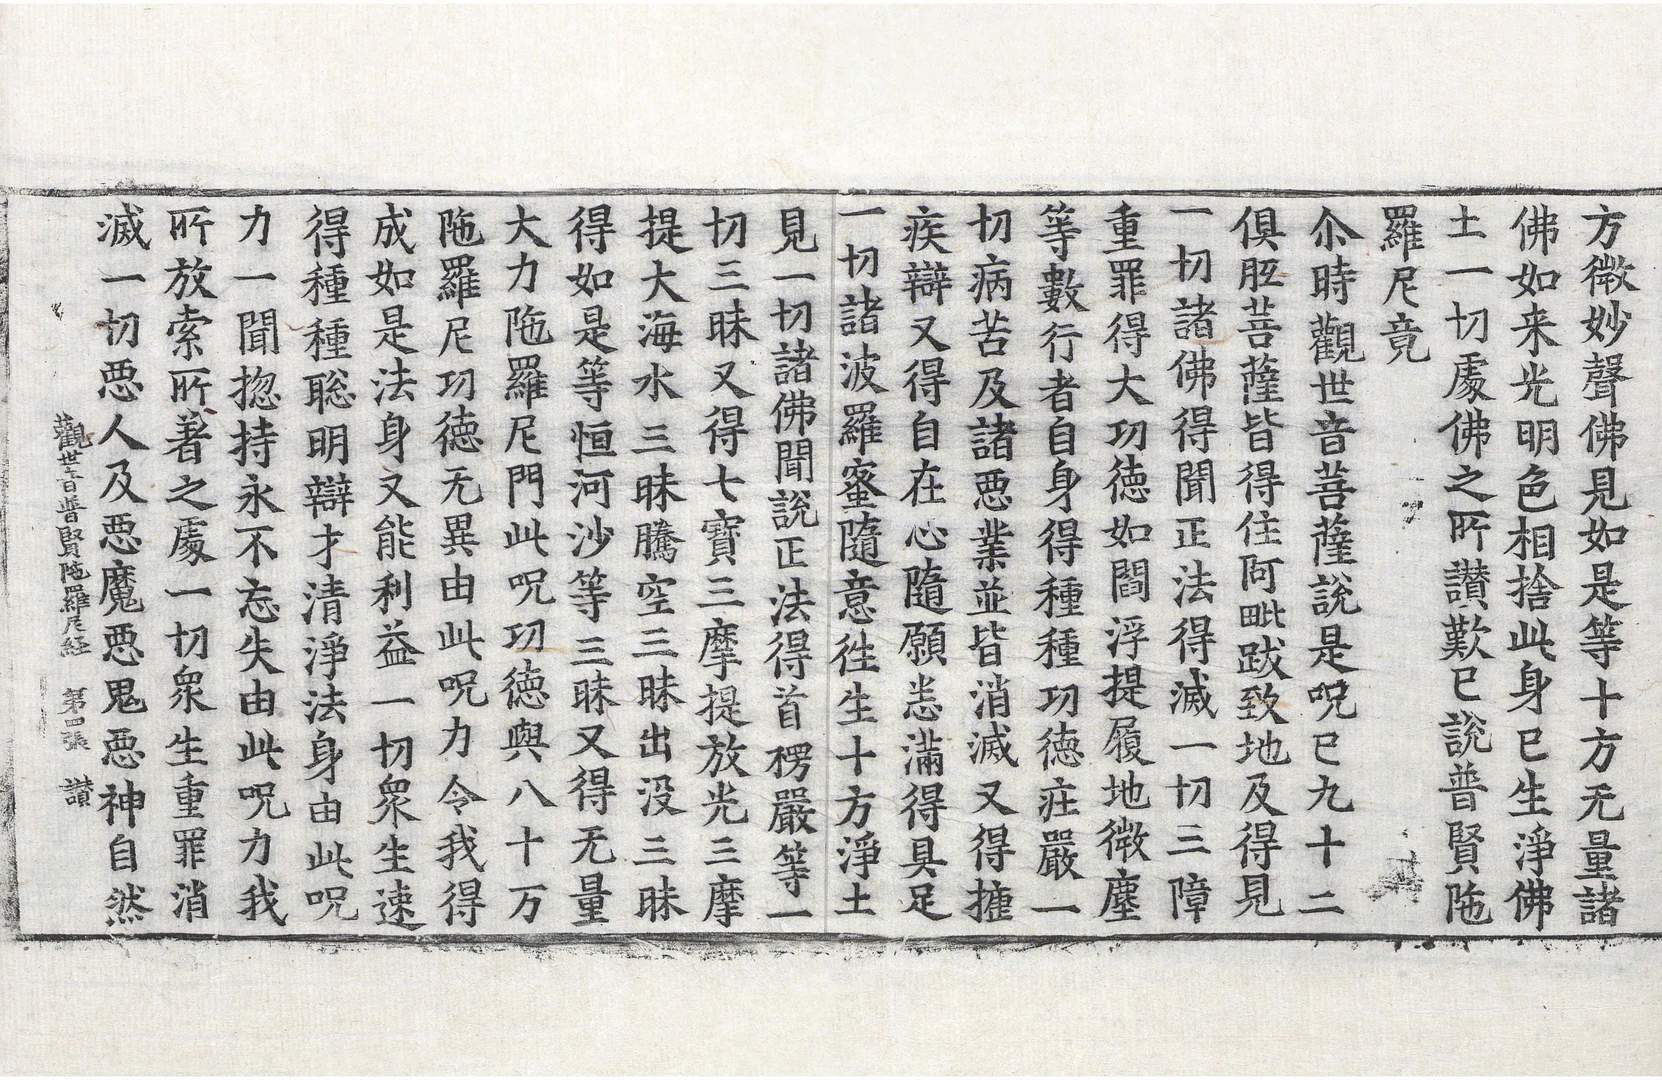 方微妙聲佛見如是等十方无量諸
佛如来光明色相捨此身已生淨佛
土一切處佛之所讃歎已說普賢陁
羅尼竟
尒時觀世音菩薩說是呪已九十二
俱胝菩薩皆得住阿毗跋致地及得見
一切諸佛得聞正法得滅一切三障
重罪得大功德如閻浮提履地微塵
等數行者自身得種種功德莊嚴一
切病苦及諸惡業並皆消滅又得捷
疾辯又得自在心隨願悉滿得具足
一切諸波羅蜜隨意徃生十方淨土
見一切諸佛聞說正法得首楞嚴等一
切三昧又得七寶三摩提放光三摩
提大海水三昧騰空三昧出没三昧
得如是等恒河沙等三昧又得无量
大力陁羅尼門此呪功德與八十万
陁羅尼功德无異由此呪力令我得
成如是法身又能利益一切衆生速
得種種聡明辯才清淨法身由此呪
力一聞揔持永不忘失由此呪力我
所放索所著之處一切衆生重罪消
滅一切惡人及惡魔惡鬼惡神自然
觀世音普賢陁羅尼経　第四張　讃